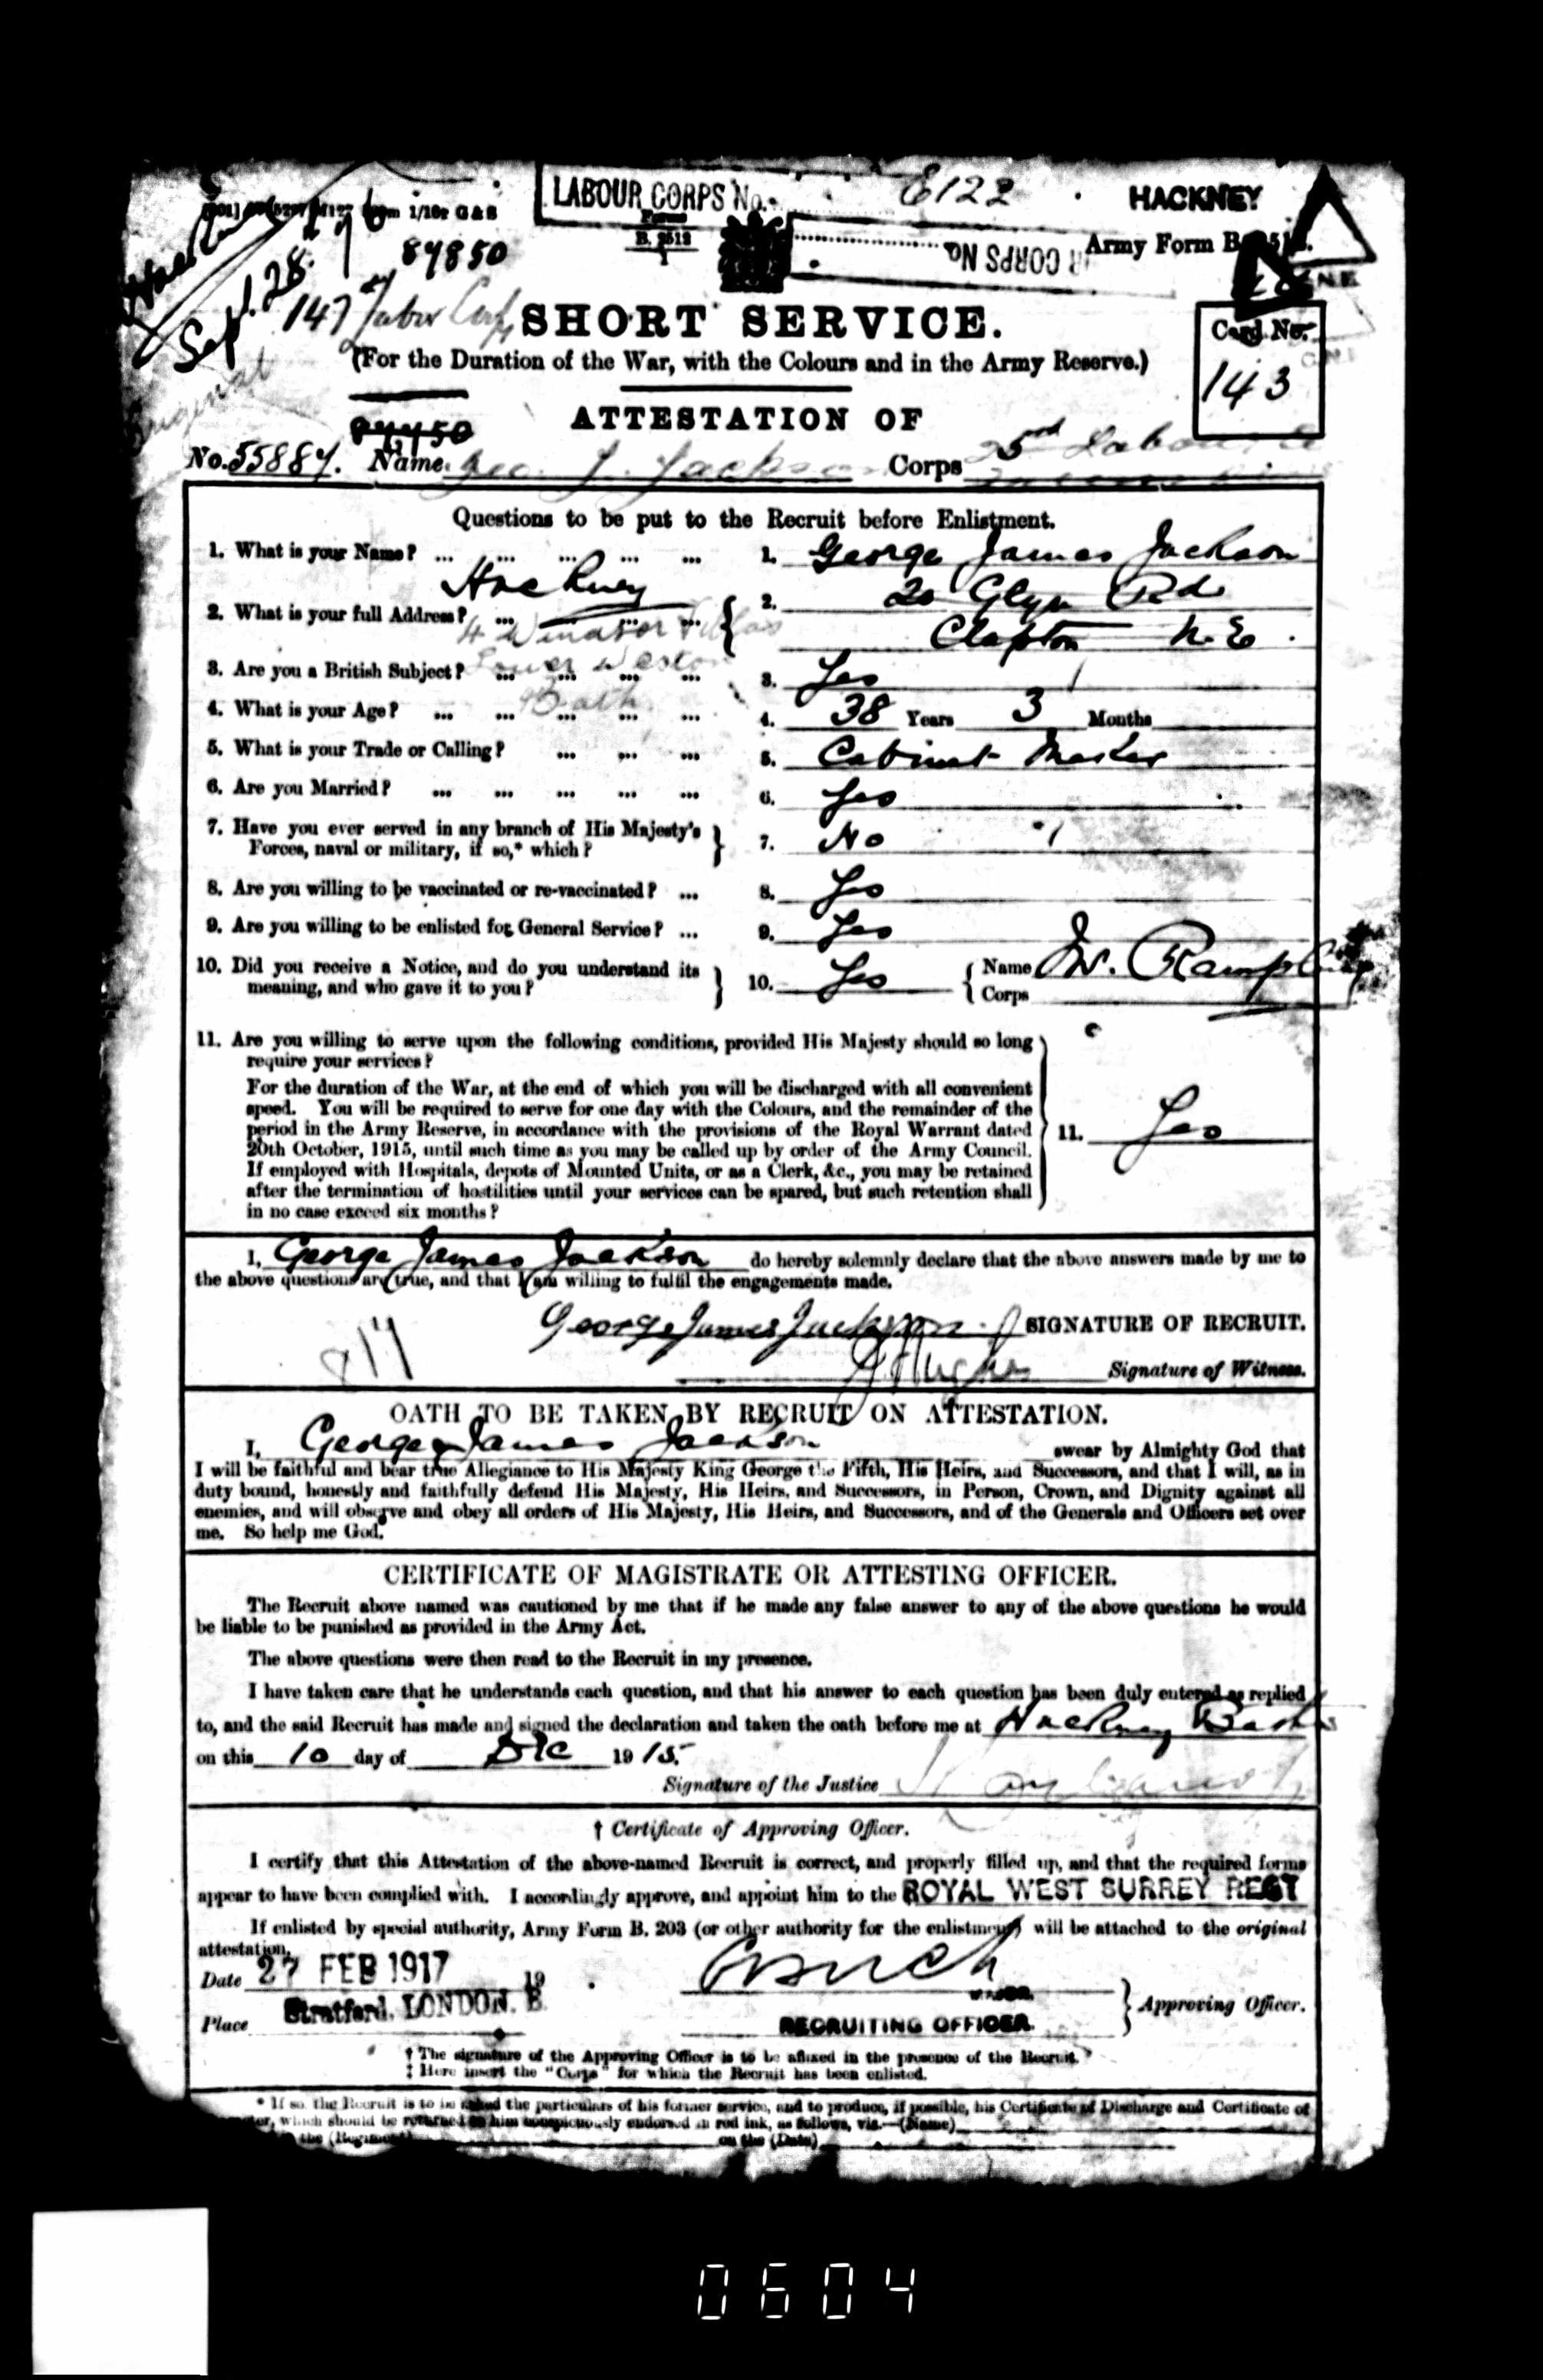 LABOUR CORPS No.
E122
HACKNEY
Forms
B. 2512
1
84850
CORPS No.
Army Form B.
Sept. 28.
147 Labor
SHORT SERVICE.
(For the Duration of the War, with the Colours and in the Army Reserve.)
Card No.
143
ATTESTATION OF
No. 55884. Name Geo. J. Jackson Corps Labour
Questions to be put to the Recruit before Enlistment.
1. What is your Name? ... ... ... ... ... 1. George James Jackson
Hackney
2. What is your full Address? ... ... ... ... { 2. 20 Glyn Rd
4 Windsor Villas
Clapton N.E.
3. Are you a British Subject? ... ... ... ... 3. Yes
Lower Weston
4. What is your Age? ... ... ... ... ... 4. 38 Years 3 Months
Bath
5. What is your Trade or Calling? ... ... ... 5. Cabinet Maker
6. Are you Married? ... ... ... ... ... 6. Yes
7. Have you ever served in any branch of His Majesty's
Forces, naval or military, if so,* which? } 7. No
8. Are you willing to be vaccinated or re-vaccinated? ... 8. Yes
9. Are you willing to be enlisted for General Service? ... 9. Yes
10. Did you receive a Notice, and do you understand its
meaning, and who gave it to you? } 10. Yes { Name W. Rampling
Corps
11. Are you willing to serve upon the following conditions, provided His Majesty should so long
require your services?
For the duration of the War, at the end of which you will be discharged with all convenient
speed. You will be required to serve for one day with the Colours, and the remainder of the
period in the Army Reserve, in accordance with the provisions of the Royal Warrant dated
20th October, 1915, until such time as you may be called up by order of the Army Council.
If employed with Hospitals, depots of Mounted Units, or as a Clerk, &c., you may be retained
after the termination of hostilities until your services can be spared, but such retention shall
in no case exceed six months? } 11. Yes
I, George James Jackson do hereby solemnly declare that the above answers made by me to
the above questions are true, and that I am willing to fulfil the engagements made.
George James Jackson. SIGNATURE OF RECRUIT.
J Hughes Signature of Witness.
OATH TO BE TAKEN BY RECRUIT ON ATTESTATION.
I, George James Jackson swear by Almighty God that
I will be faithful and bear true Allegiance to His Majesty King George the Fifth, His Heirs, and Successors, and that I will, as in
duty bound, honestly and faithfully defend His Majesty, His Heirs, and Successors, in Person, Crown, and Dignity against all
enemies, and will observe and obey all orders of His Majesty, His Heirs, and Successors, and of the Generals and Officers set over
me. So help me God.
CERTIFICATE OF MAGISTRATE OR ATTESTING OFFICER.
The Recruit above named was cautioned by me that if he made any false answer to any of the above questions he would
be liable to be punished as provided in the Army Act.
The above questions were then read to the Recruit in my presence.
I have taken care that he understands each question, and that his answer to each question has been duly entered as replied
to, and the said Recruit has made and signed the declaration and taken the oath before me at Hackney Baths
on this 10 day of Dec 1915.
Signature of the Justice
† Certificate of Approving Officer.
I certify that this Attestation of the above-named Recruit is correct, and properly filled up, and that the required forms
appear to have been complied with. I accordingly approve, and appoint him to the ROYAL WEST SURREY REGT
If enlisted by special authority, Army Form B. 203 (or other authority for the enlistment) will be attached to the original
attestation.
Date 27 FEB 1917 19
MAJOR
Place Stratford, LONDON. E
RECRUITING OFFICER.
} Approving Officer.
† The signature of the Approving Officer is to be affixed in the presence of the Recruit.
‡ Here insert the "Corps" for which the Recruit has been enlisted.
* If so, the Recruit is to be asked the particulars of his former service, and to produce, if possible, his Certificate of Discharge and Certificate of
which should be returned to him conspicuously endorsed in red ink, as follows, viz.—(Name)
the (Regiment) on the (Date)
0604